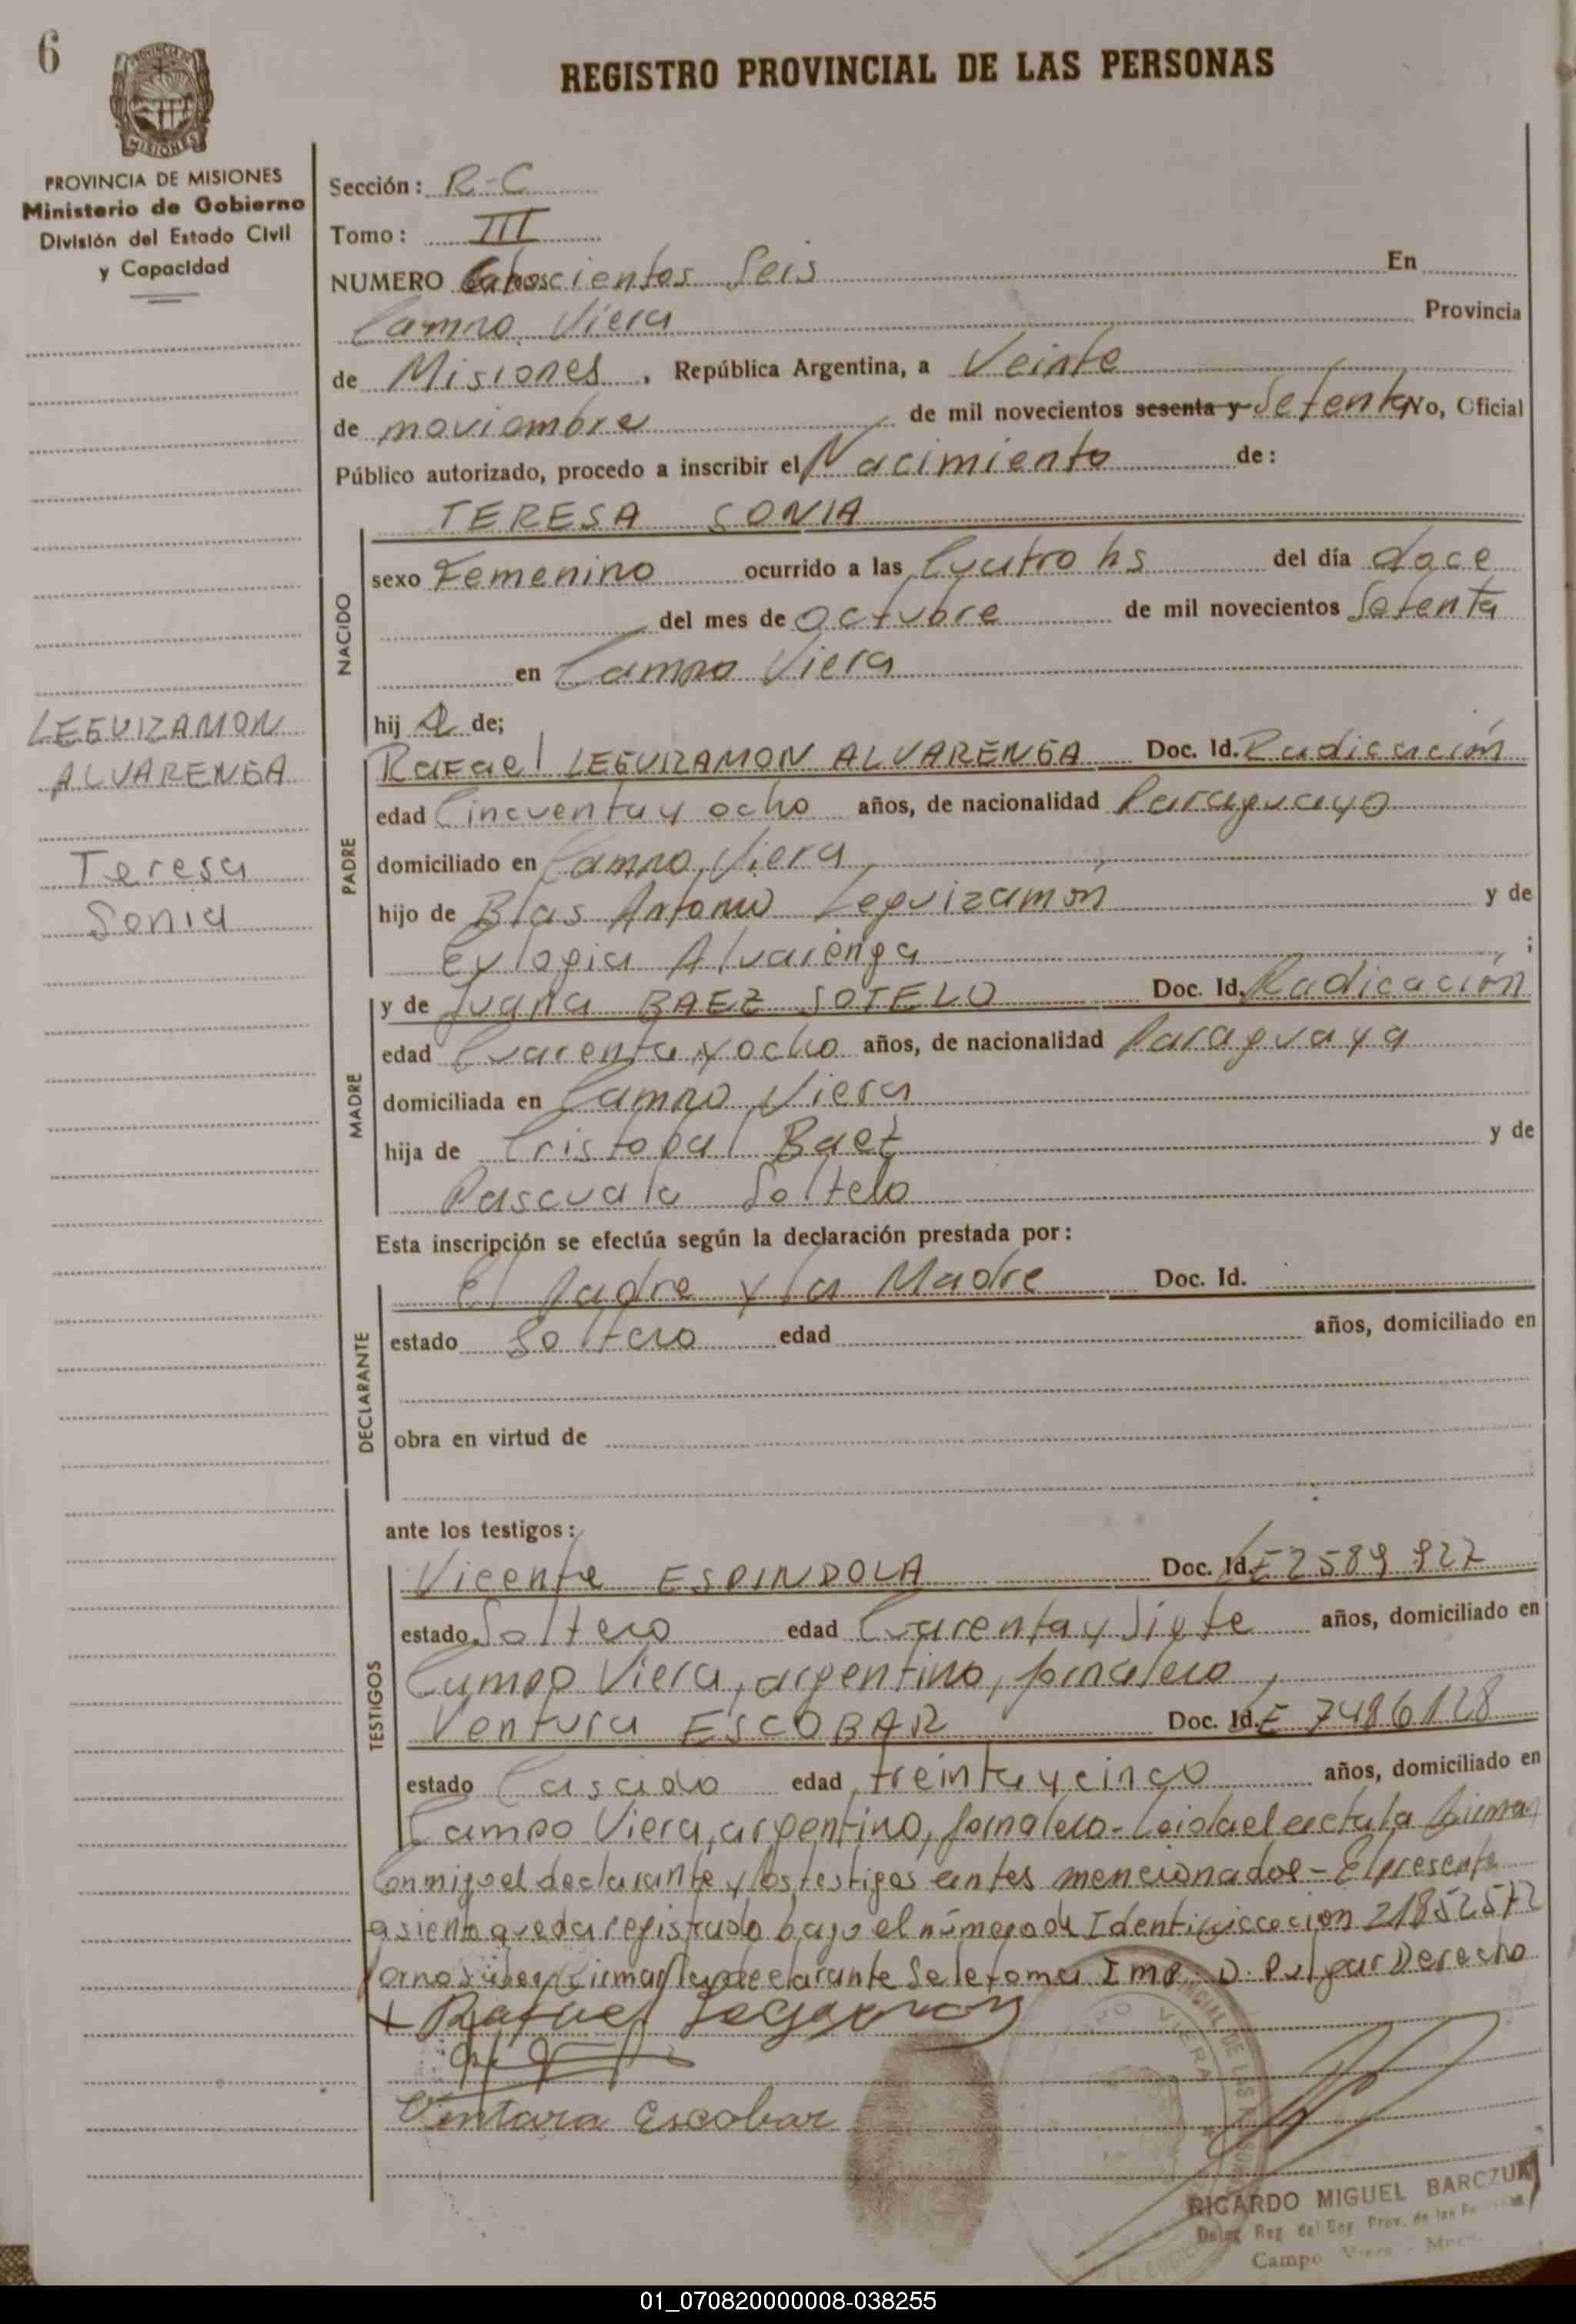 6
REGISTRO PROVINCIAL DE LAS PERSONAS
MISIONES
PROVINCIA DE MISIONES
Ministerio de Gobierno
División del Estado Civil
y Capacidad
LEGUIZAMON
ALVARENGA
Teresa
Sonia
Sección: R-C
Tomo: III
NUMERO Seis En
Campo Viera Provincia
de Misiones, República Argentina, a Veinte
de noviembre de mil novecientos sesenta y Setenta Yo, Oficial
Público autorizado, procedo a inscribir el Nacimiento de:
TERESA SONIA
NACIDO
sexo Femenino ocurrido a las Cuatro hs del día doce
del mes de octubre de mil novecientos Setenta
en Campo Viera
hij a de;
PADRE
Rafael LEGUIZAMON ALVARENGA Doc. Id. Radicación
edad Cincuenta y ocho años, de nacionalidad Paraguayo
domiciliado en Campo Viera
hijo de Blas Antonio Leguizamón y de
Eulogia Alvarenga ;
MADRE
y de Juana BAEZ SOTELO Doc. Id. Radicación
edad Cuarenta y ocho años, de nacionalidad Paraguaya
domiciliada en Campo Viera
hija de Cristobal Baez y de
Pascuala Soltelo
Esta inscripción se efectúa según la declaración prestada por:
DECLARANTE
El Padre y la Madre Doc. Id.
estado Soltero edad años, domiciliado en
obra en virtud de
ante los testigos:
TESTIGOS
Vicente ESPINDOLA Doc. Id. LE 2589927
estado Soltero edad Cuarenta y Siete años, domiciliado en
Campo Viera, argentino, jornalero,
Ventura ESCOBAR Doc. Id. E 7486128
estado Casado edad treinta y cinco años, domiciliado en
Campo Viera, argentino, jornalero - Leida el acta la firman
Conmigo el declarante y los testigos antes mencionados - El presente
asiento queda registrado bajo el número de Identificacion 21852572
por no saber firmar la declarante se le toma Imp. D. Pulgar Derecho
Rafael
Ventura Escobar
RICARDO MIGUEL BARCZUK
Deleg Reg. del Reg Prov. de las
Campo Viera - Mnes.
01_070820000008-038255